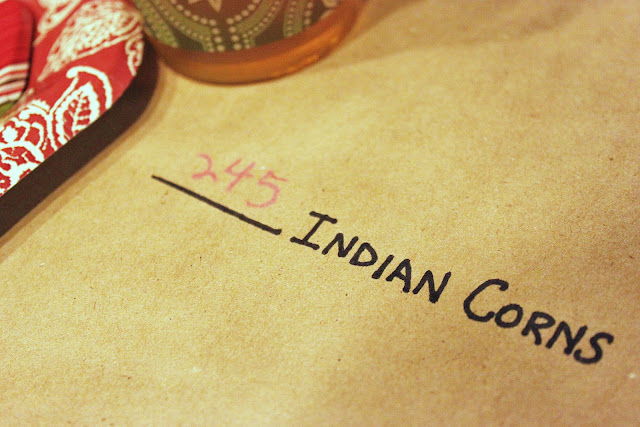 245 INDIAN CORNS